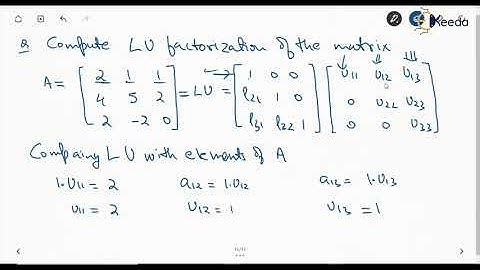 Keeda
Q Compute LU factorization of the matrix
A = [ 2 1 1 ; 4 5 2 ; 2 -2 0 ] = LU = [ 1 0 0 ; l21 1 0 ; l31 l22 1 ] [ U11 U12 U13 ; 0 U22 U23 ; 0 0 U33 ]
Compaing LU with elements of A
1·U11 = 2 a12 = 1·U12 a13 = 1·U13
U11 = 2 U12 = 1 U13 = 1